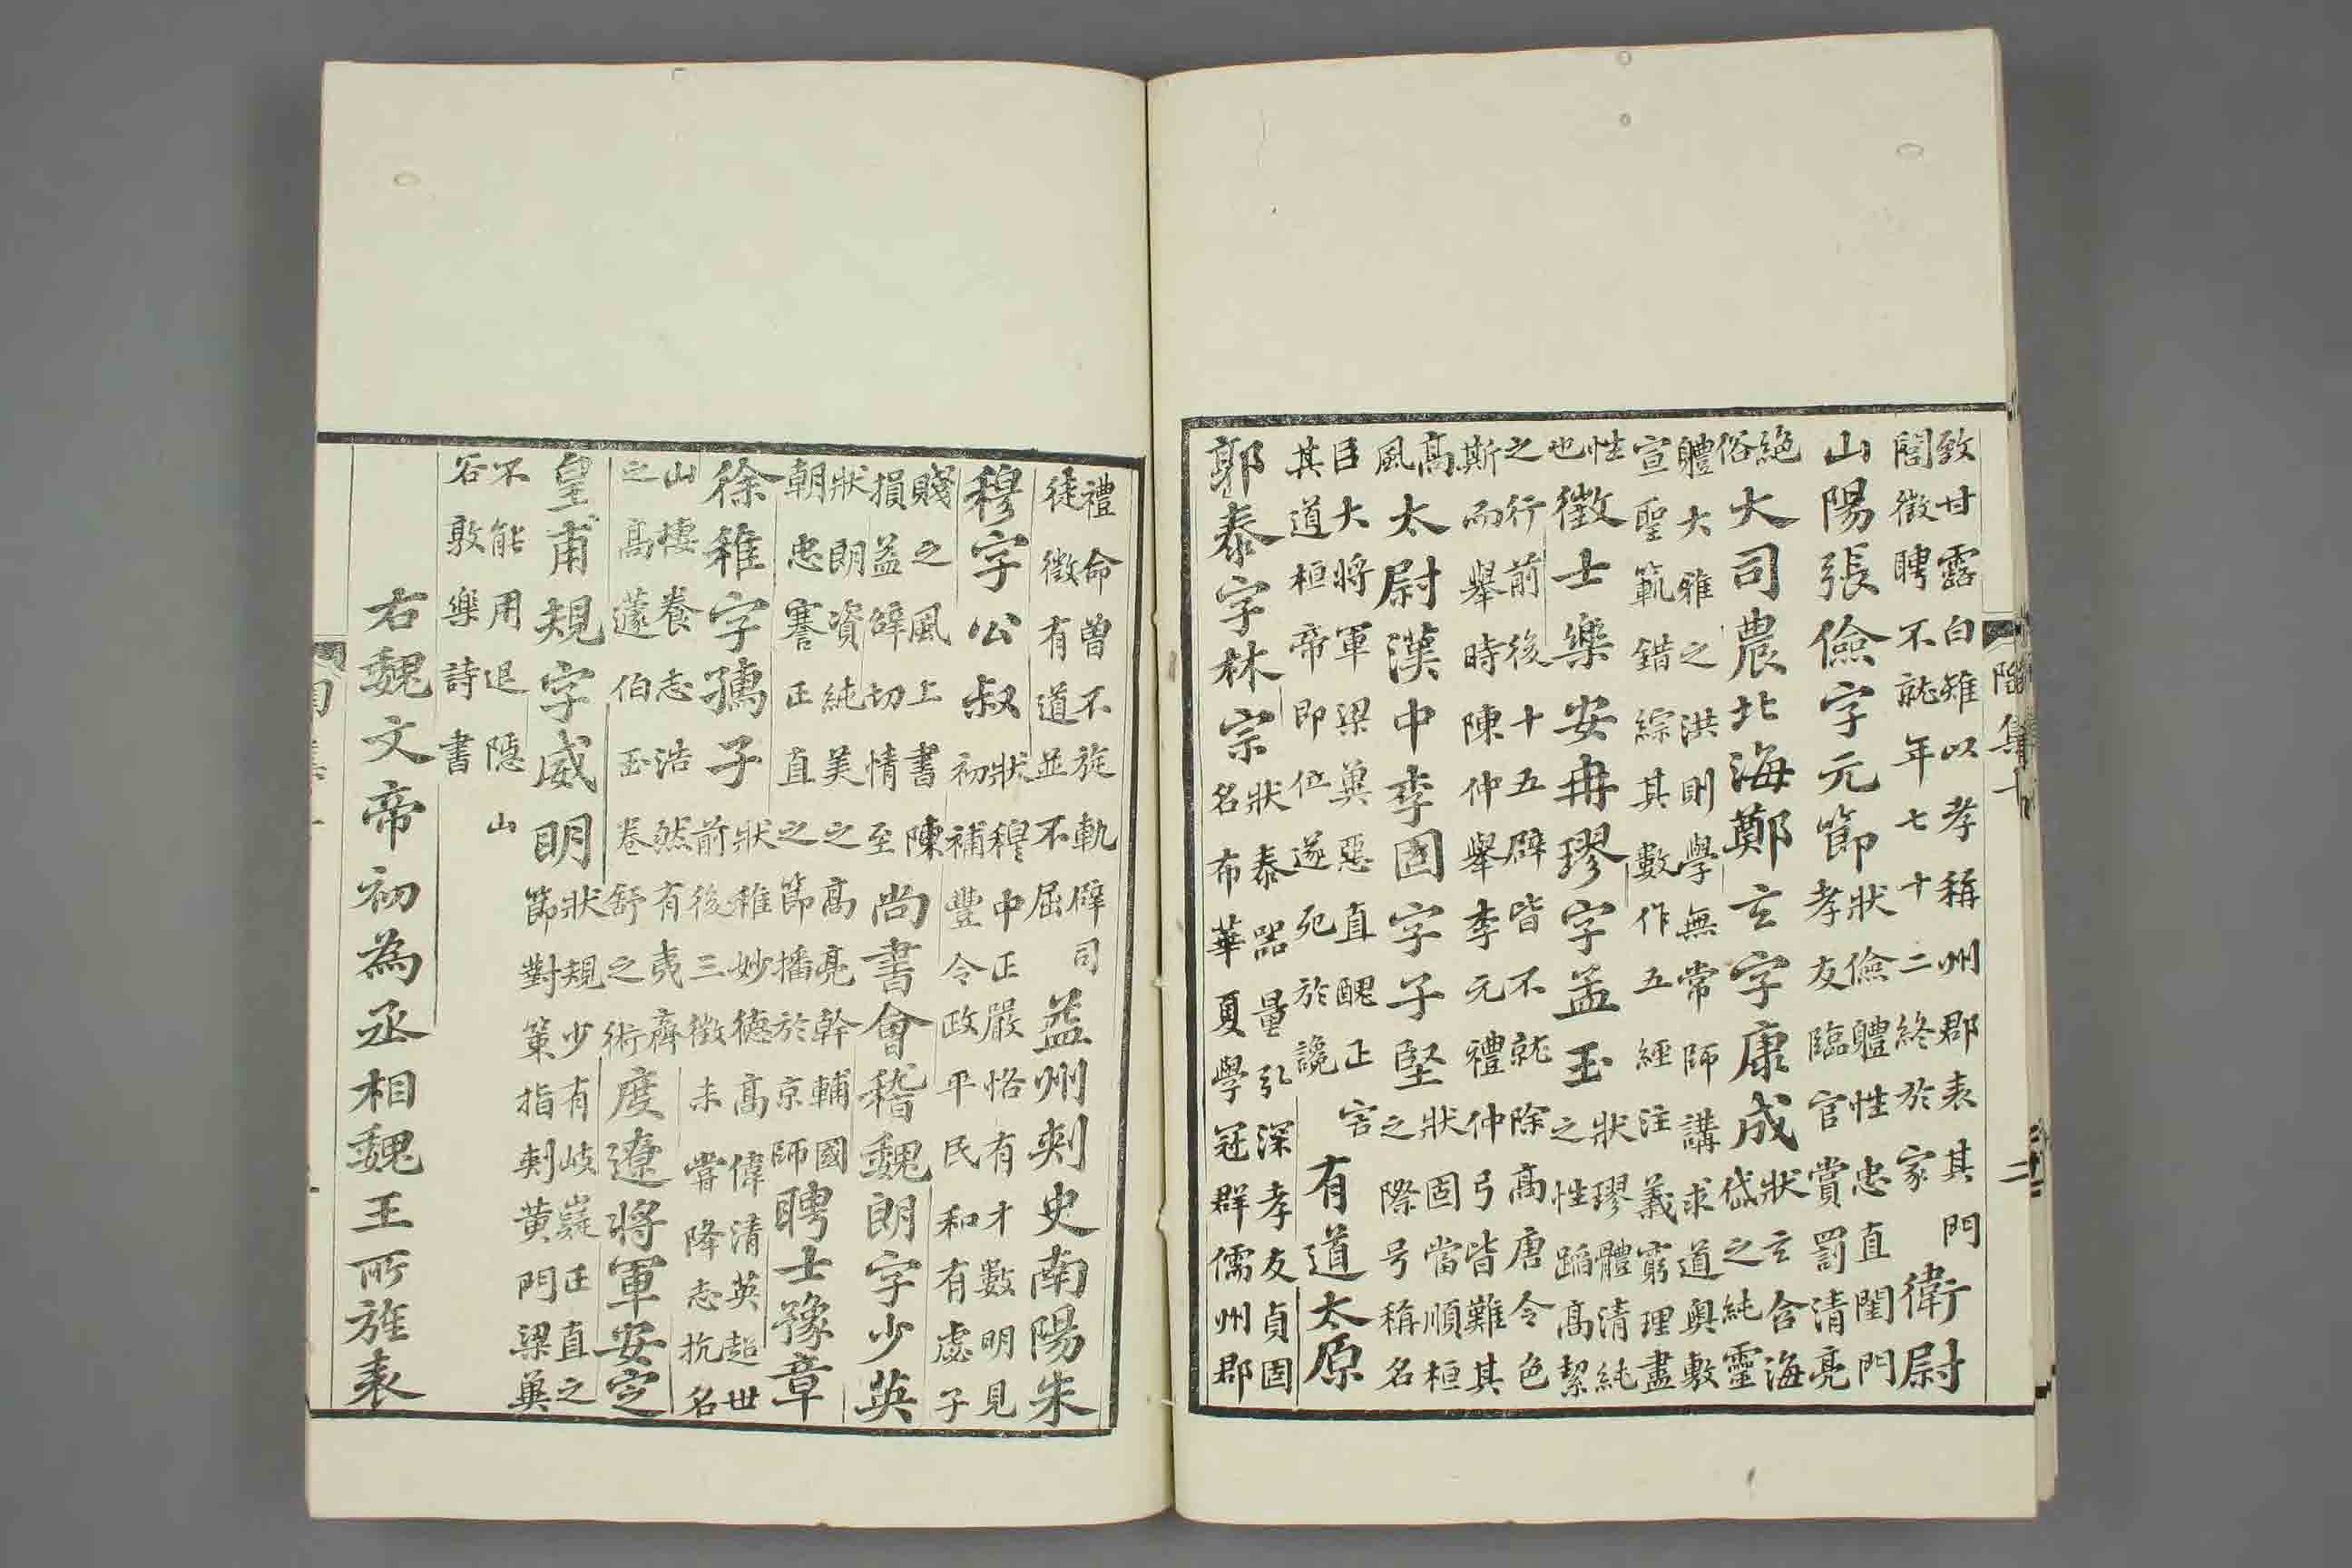 陶集十
二
致甘露白雉以孝稱州郡表其門
閭徵聘不就年七十二終於家
衛尉
山陽張儉字元節
狀儉體性忠直閨門
孝友臨官賞罰清亮
絶
俗
大司農北海鄭玄字康成
狀玄含海
岱之純靈
體大雅之洪則學無常師講求道奥敷
宣聖範錯綜其數作五經注義窮理盡
性
也
徵士樂安冉璆字孟玉
狀璆體清純
之性蹈高絜
之行前後十五辟皆不就除高唐令色
斯而舉時陳仲舉李元禮仲弓皆難其
高
風
太尉漢中李固字子堅
狀固當順桓
之際号稱名
臣大將軍梁冀惡直醜正害
其道桓帝即位遂死於讒
有道太原
郭泰字林宗
狀泰器量弘深孝友貞固
名布華夏學冠群儒州郡
禮命曾不旋軌辟司
徒徵有道並不屈
益州刺史南陽朱
穆字公叔
狀穆中正嚴恪有才數明見
初補豐令政平民和有處子
賤之風上書陳
損益辟切情至
尚書會稽魏朗字少英
狀朗資純美之高亮幹輔國
朝忠謇正直之節播於京師
聘士豫章
徐稚字孺子
狀稚妙德高偉清英超世
前後三徵未嘗降志抗名
山棲養志浩然有夷齊
之高蘧伯玉卷舒之術
度遼將軍安定
皇甫規字威明
狀規少有岐嶷正直之
節對策指刺黄門梁冀
不能用退隱山
谷敦樂詩書
右魏文帝初為丞相魏王所旌表